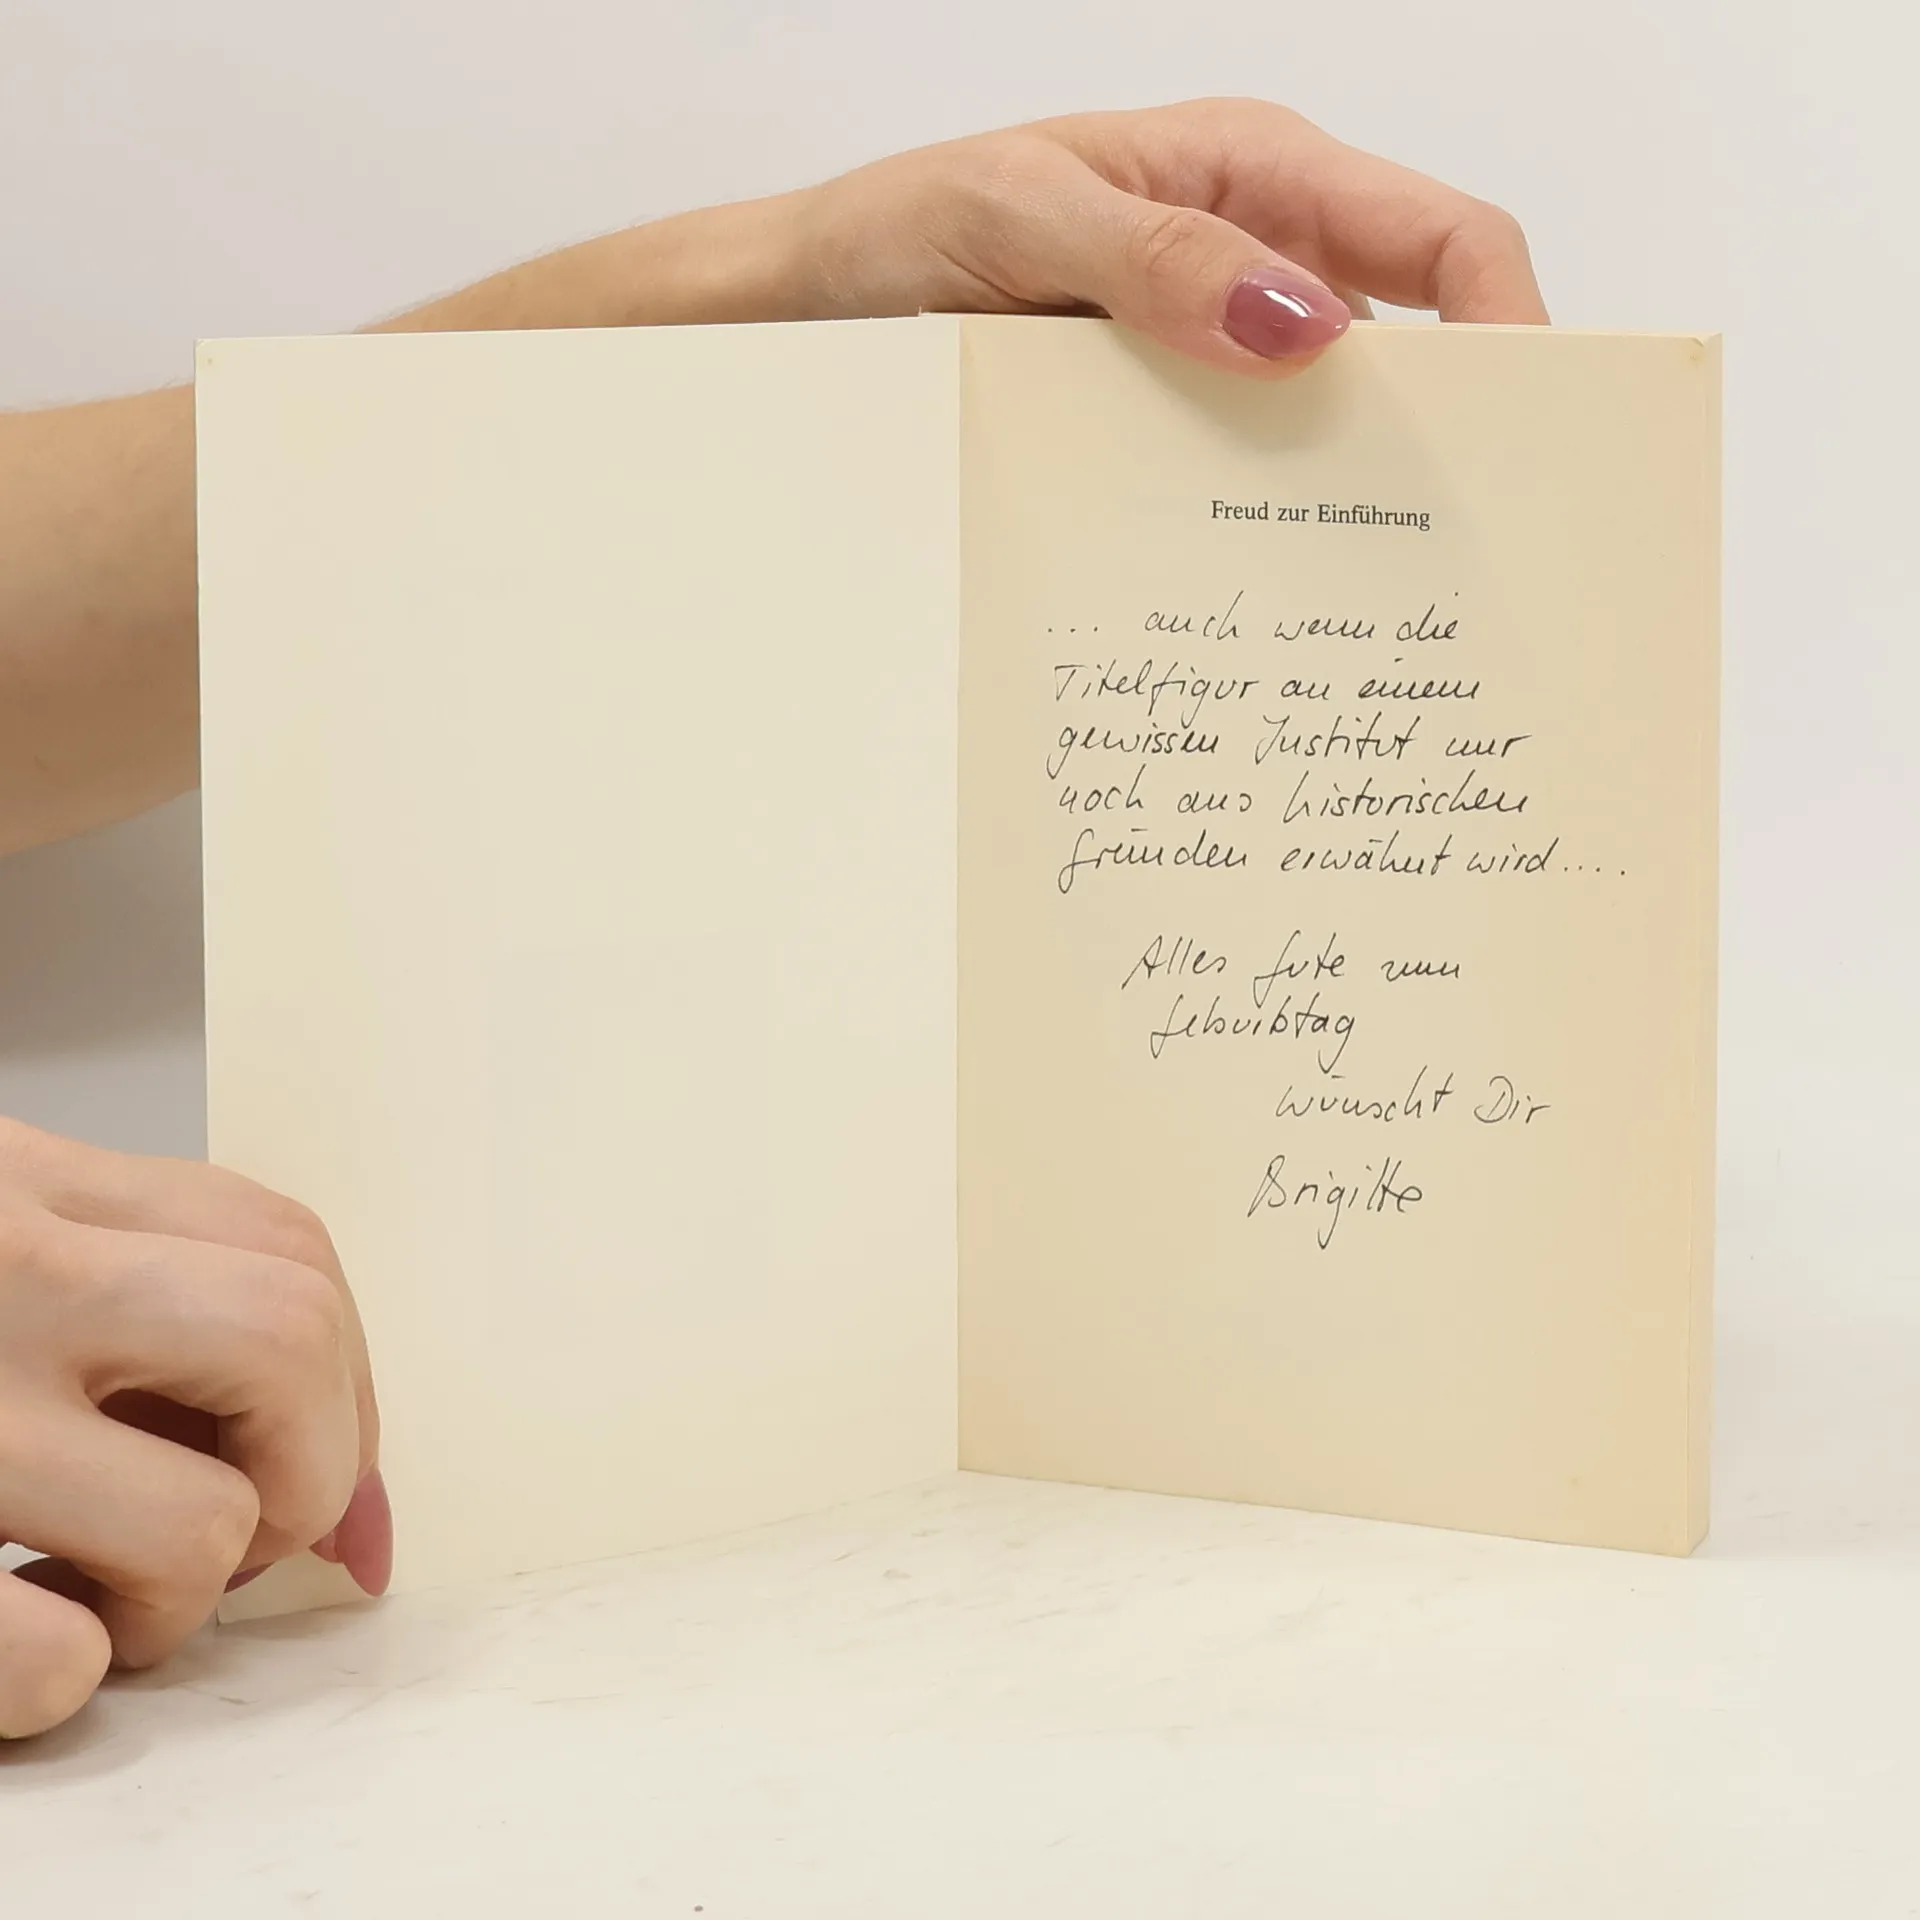 Freud zur Einführung
... auch wenn die
Titelfigur an einem
gewissen Institut nur
noch aus historischen
Gründen erwähnt wird....
Alles Gute zum
Geburtstag
wünscht Dir
Brigitte